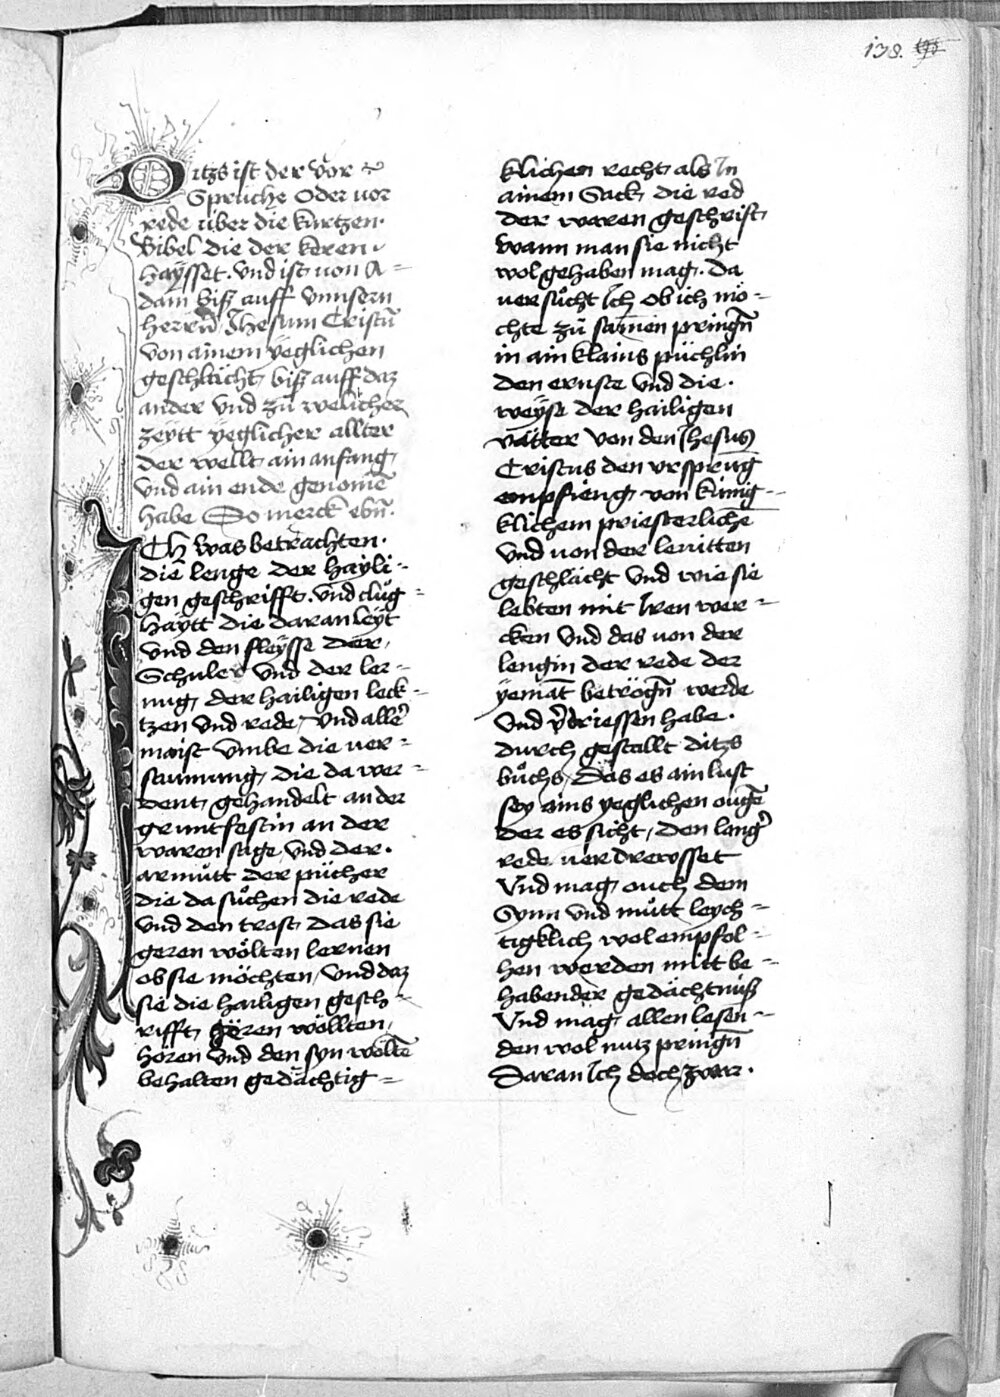 138.
Ditzs ist der vor
Spruche Oder vor
rede über die kurtzen.
Bibel die der keren
haÿsset. vnd ist von A=
dam biß auff vnnsern
herrn Jhesum Cristū
von ainem ÿeglichen
geschlächt biß auff daz
ander vnd zů welicher
zeÿtt ÿeglicher allter
der wellt ain anfang
vnd ain ende genomē
habe So merck ebn̄.
ICh was betrachten.
die lenge der hayli=
gen geschrifft. vnd clůg=
haÿtt die daran leÿt
vnd den fleÿsse der
Schuler vnd der ler=
nug, der hailigen leck=
tzen vnd rede, vnd aller
maist vmbe die ver=
saumung, die da wer=
dent, gehandelt an der
gruntfestin an der
waren sage vnd der.
armůtt der pücher
die da sůchen die rede
vnd den trost das sie
geren wölten lernen
ob sie möchten, vnd daz
sie die hailigen gesch=
rifft, hören wöllten,
hören vnd den syn woltē
behalten gedächtig=
klichen recht als In
ainem Sack, die red
der waren geschrift
wann man sie nicht
wol gehaben mag. da
versůcht Ich ob ich mö=
chte zů samen pringn̄
in ain klains püchlin
den ernste vnd die.
weÿse der hailigen
vätter von den Jhesus
Cristus den vrsprug
empfieng, von künig=
klichem priesterlichē
vnd von der leuitten
geschlächt vnd wie sie
lebten mit Iren wer=
cken vnd das von der
lengin der rede der
ÿemāt betrögn̄ werde
vnd v̄driessen habe.
durch gestallt ditzs
bůchs, Das es ain lust
sey ains yeglichen ougē
der es sicht, den lang̉
rede verdrewsset
Vnd mag ouch dem
Synn vnd můtt leych=
tigklich wol empfol=
hen werden mitt be=
habender gedächtnüß
Vnd mag, allen lesen=
den wol nutz pringn̄
Daran Ich doch zwar.